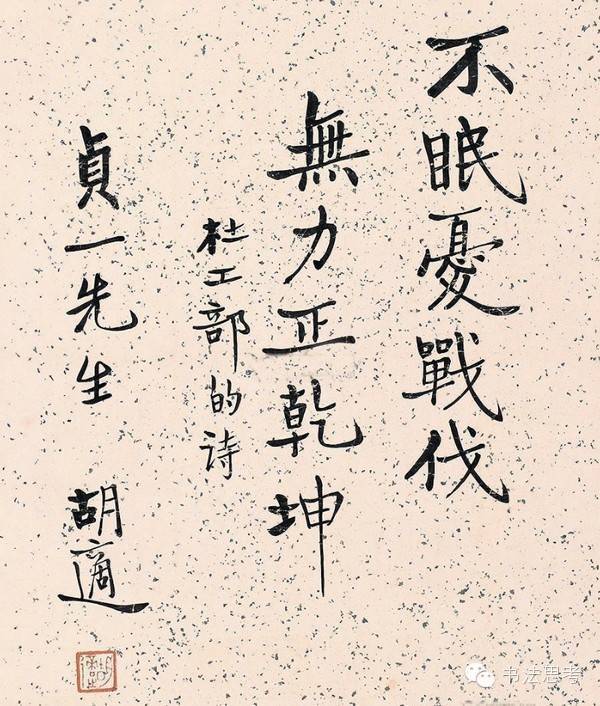 不眠憂戰伐
無力正乾坤
杜工部的诗
貞一先生 胡適
书法思考